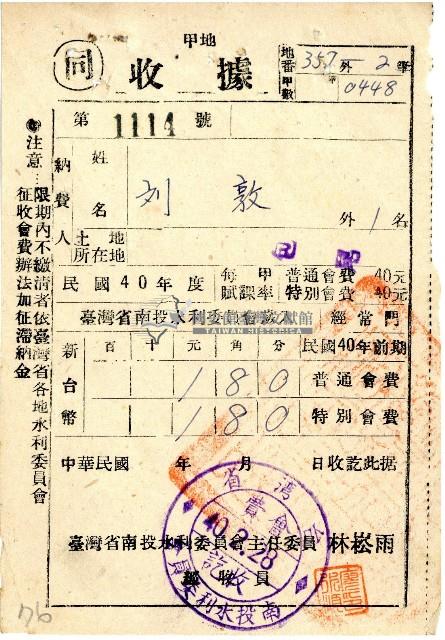 甲地
同 收據
地番 357 外 2 筆
甲數 0448
第 1114 號
納費人
姓名 刘敦 外1名
土地所在地
民國40年度 每甲賦課率 普通會費 40元 特別會費 40元
臺灣省南投水利委員會 經常門
新台幣 百 十 元 角 分 民國40年前期
1 8 0 普通會費
1 8 0 特別會費
中華民國 年 月 日收訖此据
臺灣省南投水利委員會主任委員 林崧雨
經收員
會費
40.2.28
收訖
南投水利委員
◉注意…限期內不繳清者依臺灣省各地水利委員會
征收會費辦法加征滯納金
TAIWAN HISTORICA
76